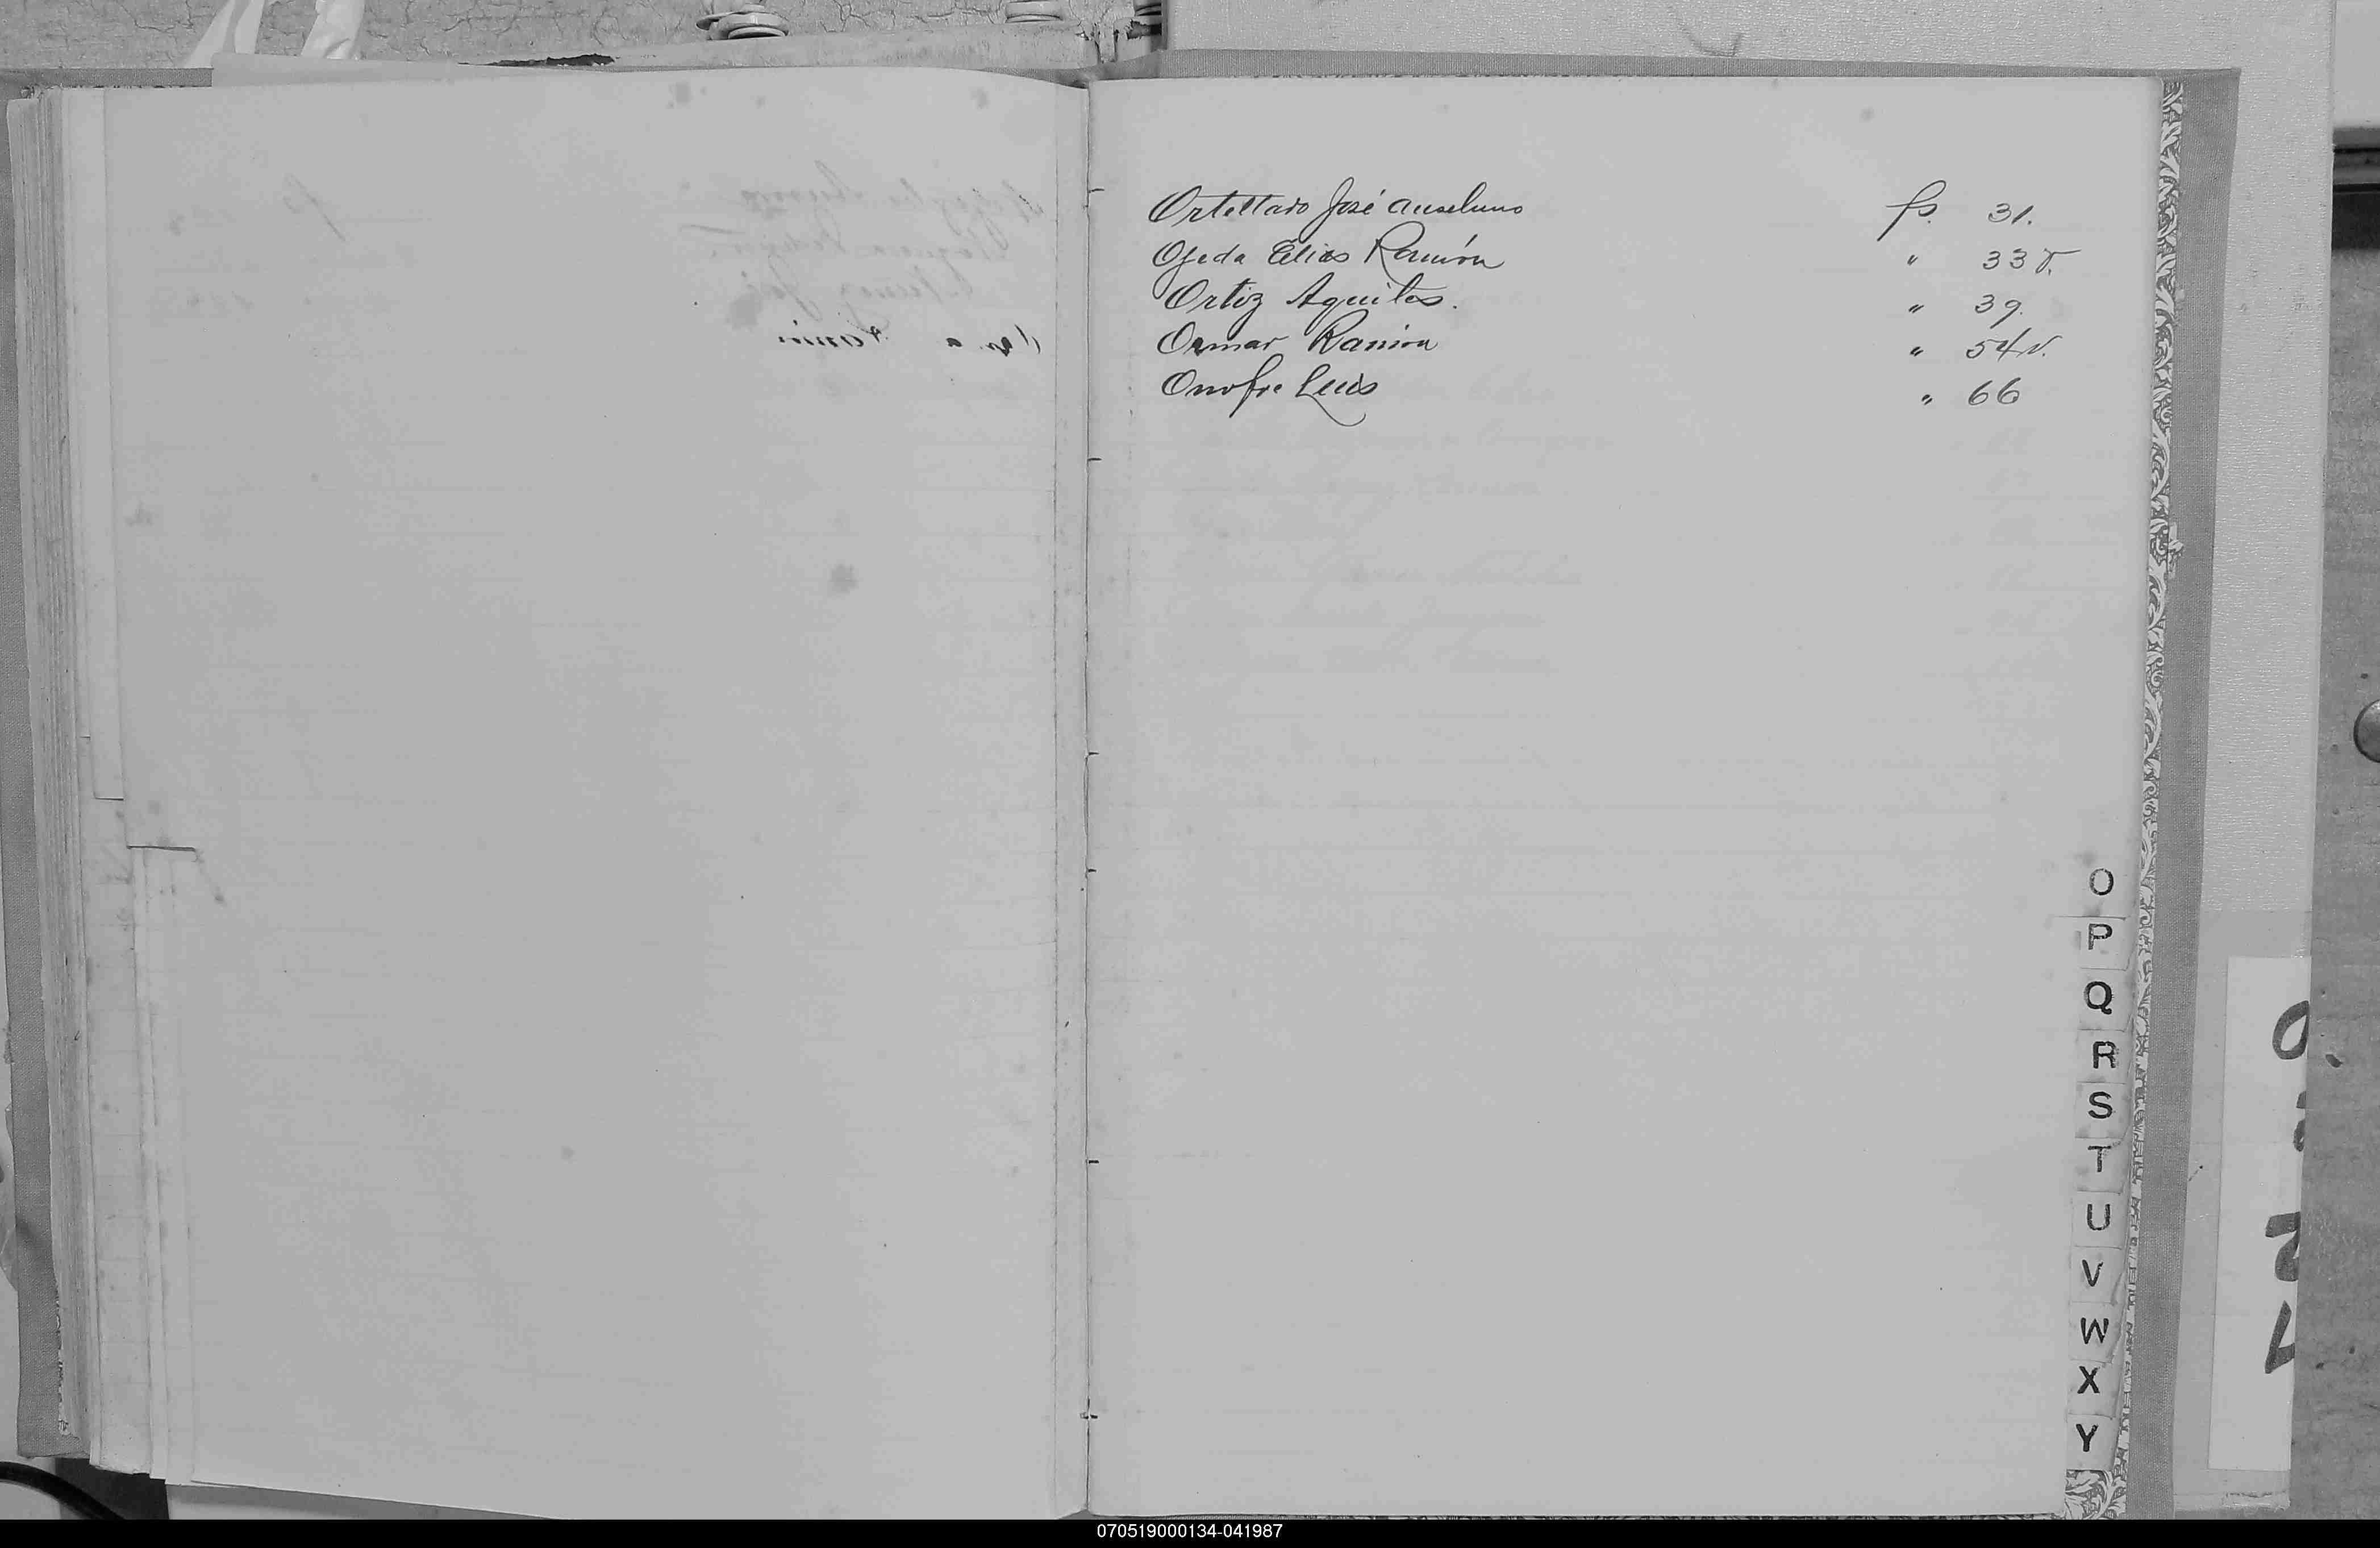 Ortellado José Anselmo fs. 31.
Ojeda Elias Ramón " 33 v.
Ortiz Aquiles. " 39.
Ormar Ramón " 54 v.
Onofre Luis " 66
O
P
Q
R
S
T
U
V
W
X
Y
070519000134-041987